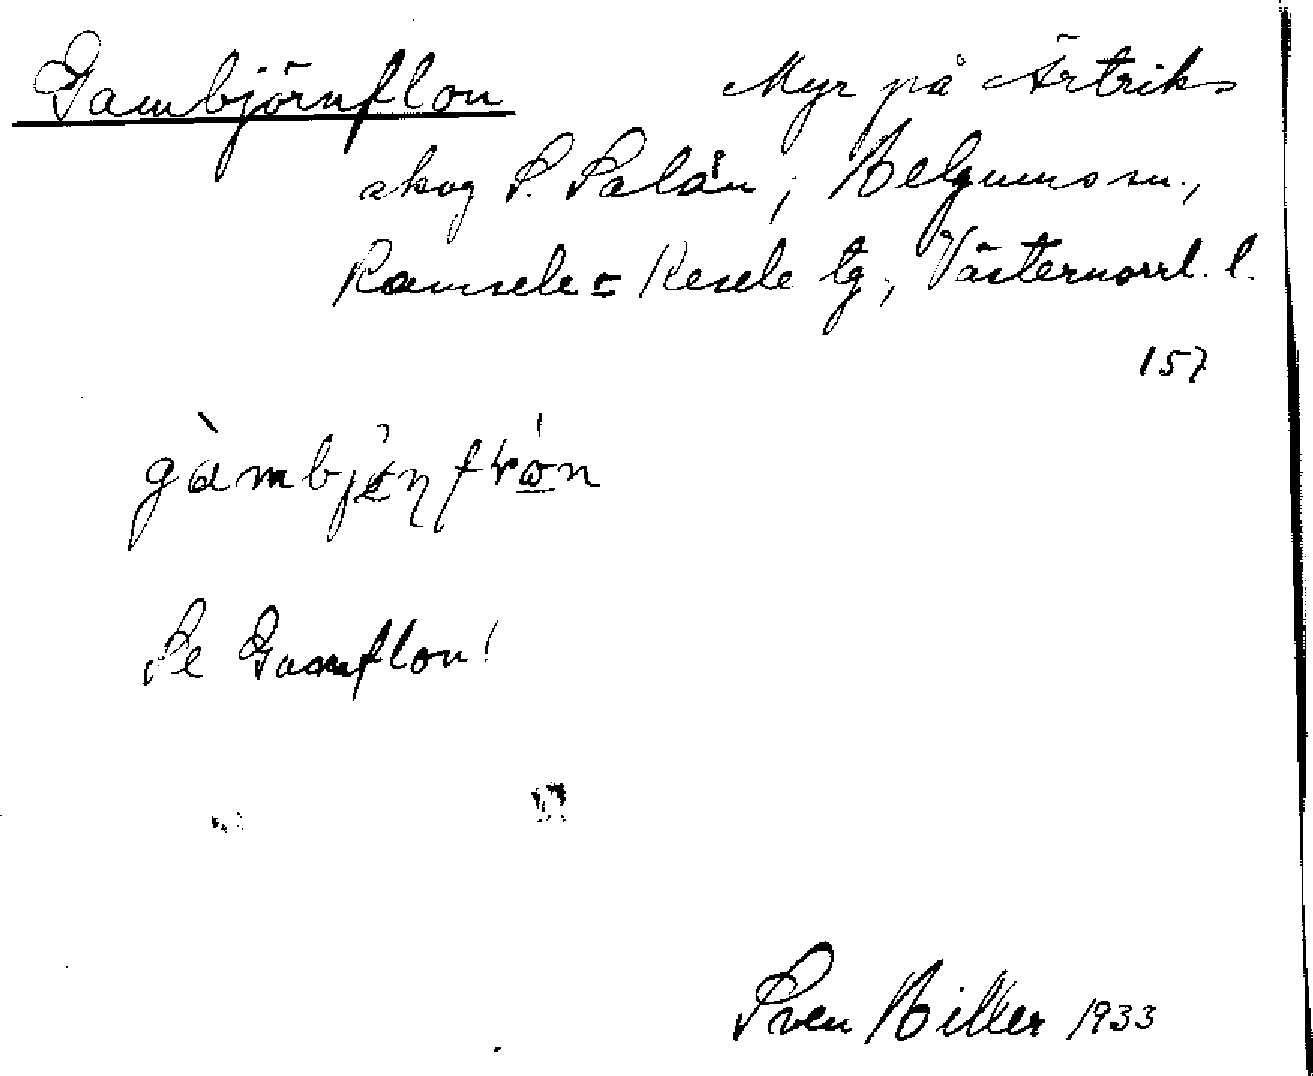 Gambjörnflon Myr på Ärtriks
skog S. Salån, Helgums sn.,
Ramsele = Resele tg, Västernorrl. l.
157
Se Gamflon!
Sven Hiller 1933